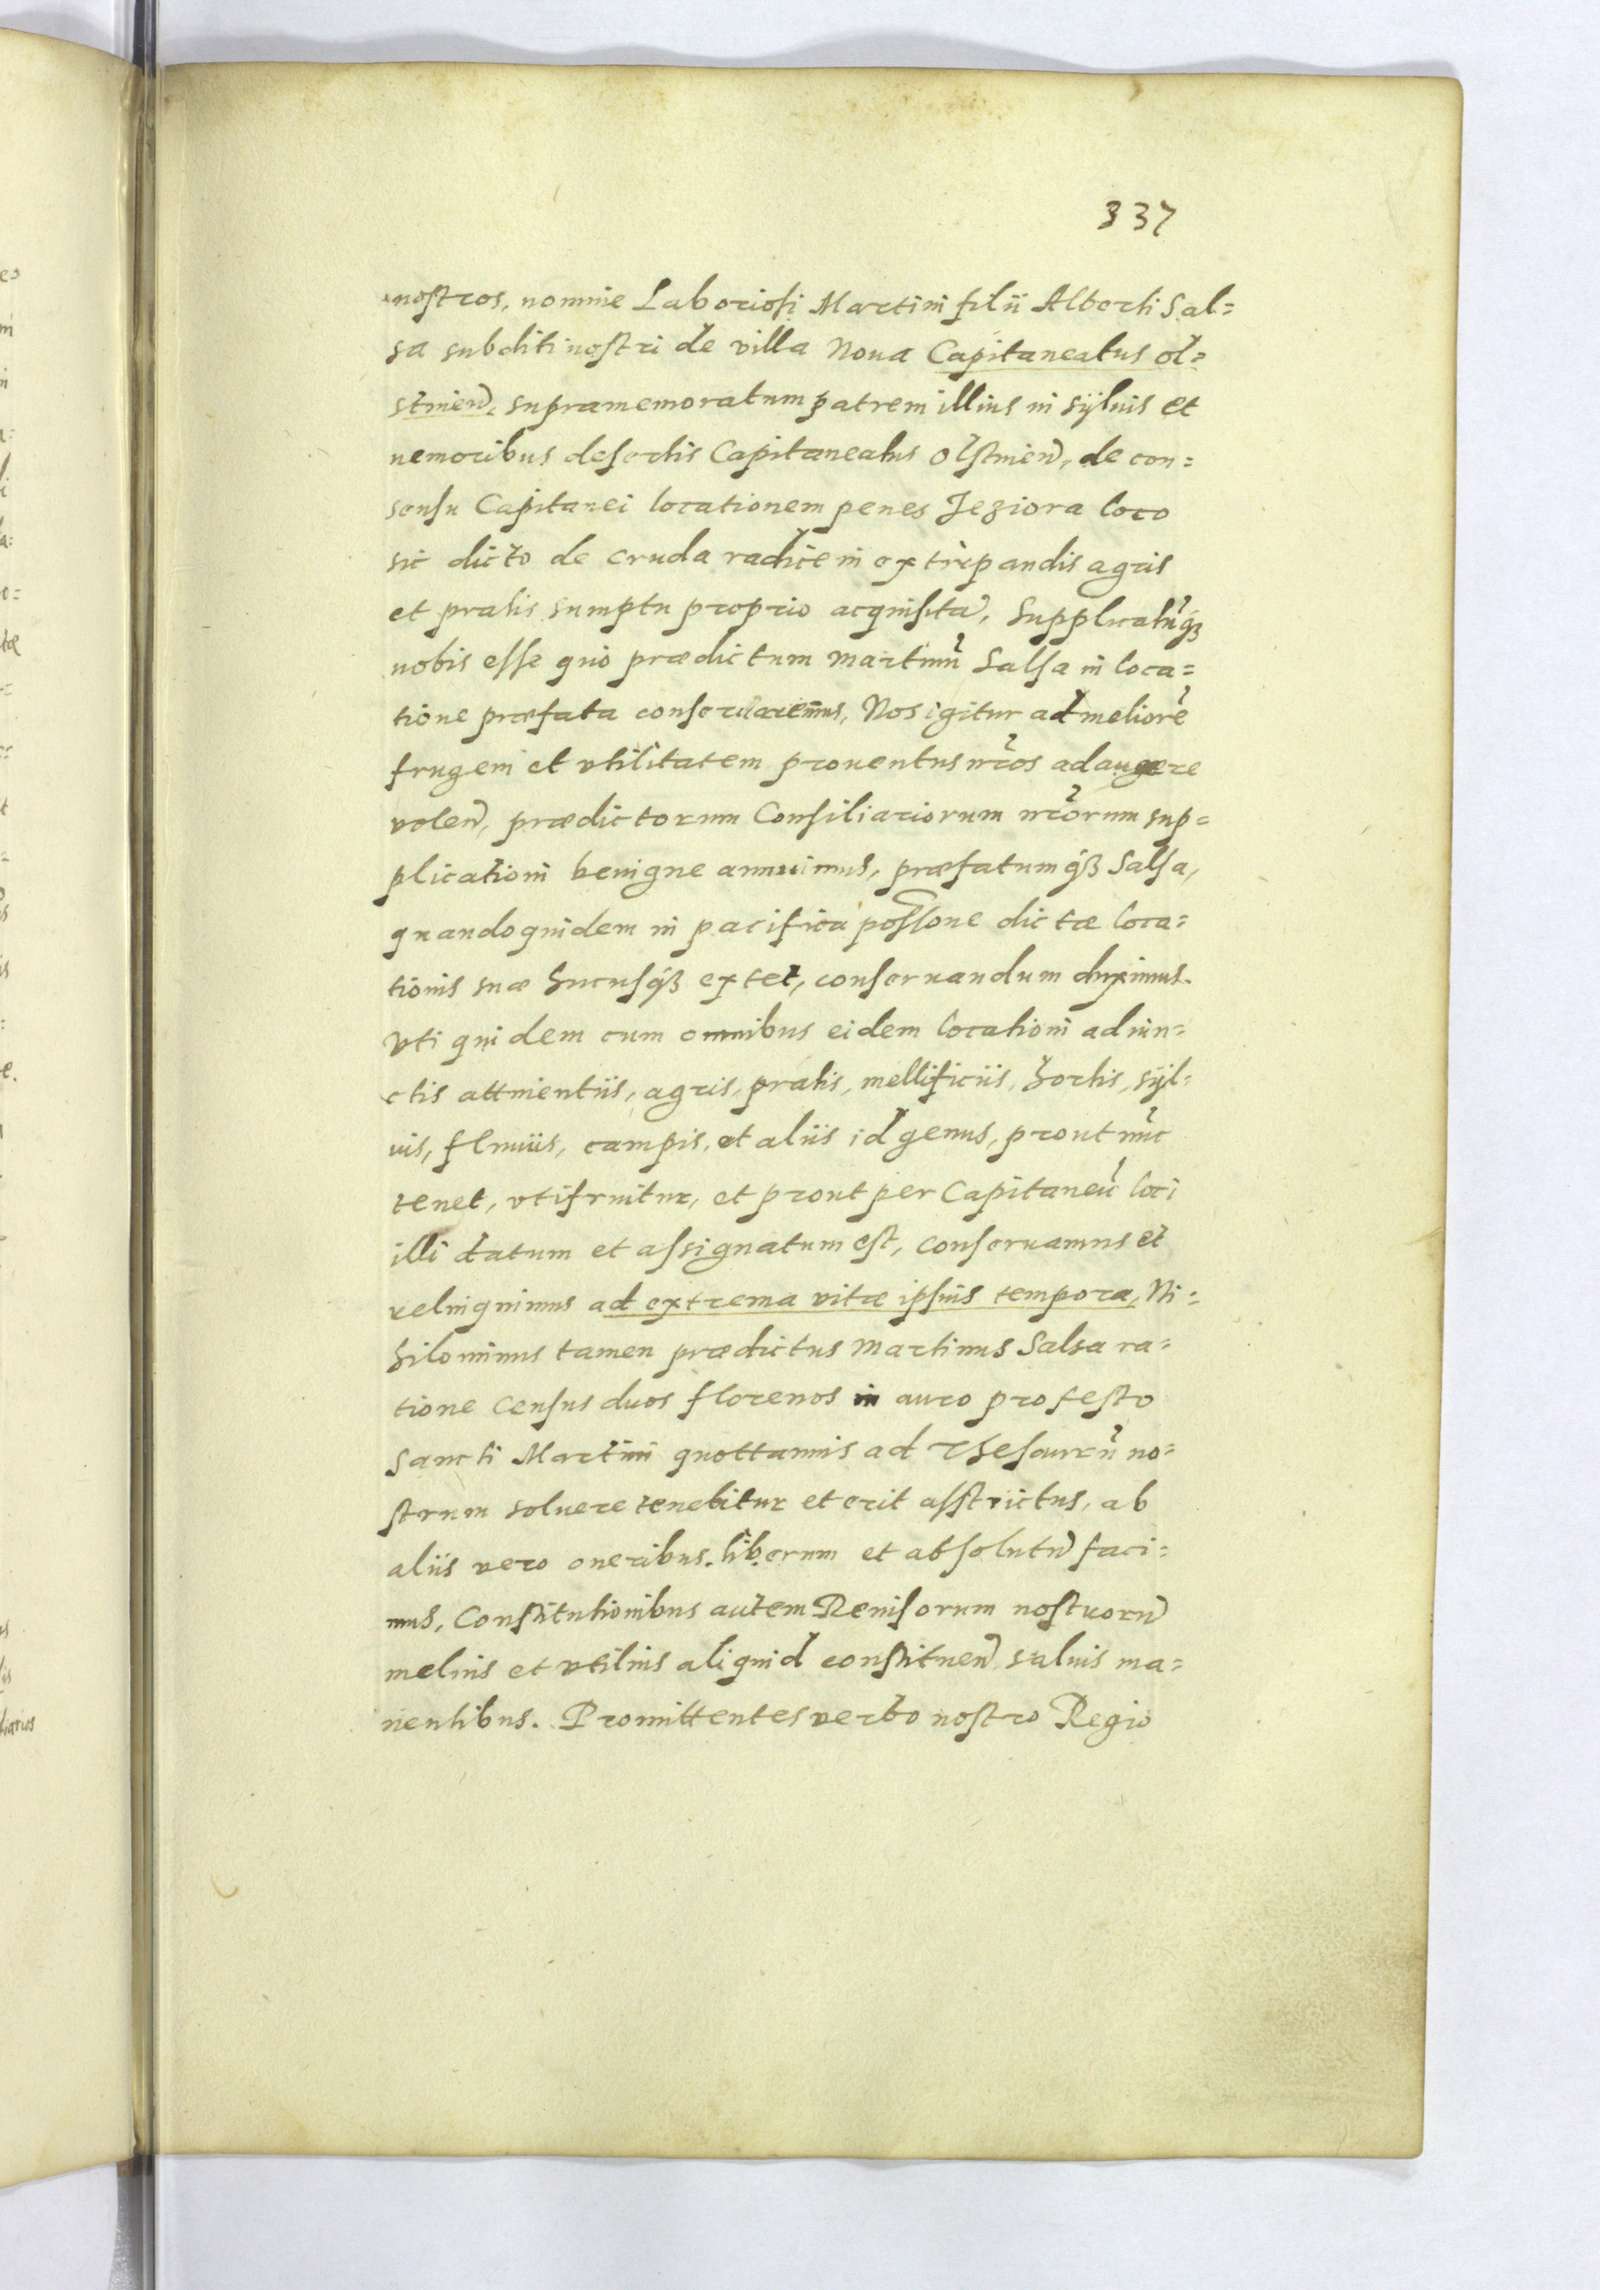 337
nostros, nomine Laboriosi Martini filii Alberti Sal=
sa subditi nostri de villa Noua Capitaneatus Ol=
stinen̄, supramemoratum patrem illius in syluis et
nemoribus desertis Capitaneatus Olstinen̄, de con=
sensu Capitanei locationem penes Jeziora loco
sic dicto de cruda radice in extirpandis agris
et pratis sumptu proprio acquisita, Supplicatūq3
nobis esse quo prædictum Martinū Salsa in loca=
tione præfata conseruaremus, Nos igitur ad meliorē
frugem et vtilitatem prouentus nr̄os adaugere
volen̄, prædictorum Consiliariorum nr̄orum sup=
plicationi benigne annuimus, præfatumq3 Salsa,
quandoquidem in pacifica possone dictæ loca=
tionis suæ hucusq3 extet, conseruandum duximus.
Vti quidem cum omnibus eidem locationi adiun=
ctis attinentiis, agris, pratis, mellificiis, hortis, syl=
uis, fluuiis, campis, et aliis id genus, prout nūc
tenet, vtifruitur, et prout per Capitaneū loci
illi datum et assignatum est, conseruamus et
relinquimus ad extrema vitæ ipsius tempora, Ni=
hilominus tamen prædictus Martinus Salsa ra=
tione Census duos florenos in auro pro festo
Sancti Martini quottannis ad Thesaurū no=
strum soluere tenebitur et erit asstrictus, ab
aliis vero oneribus liberum et absolutū faci=
mus, Constitutionibus autem Reuisorum nostrorū
melius et vtilius aliquid constituen̄ saluis ma=
nentibus. Promittentes verbo nostro Regio